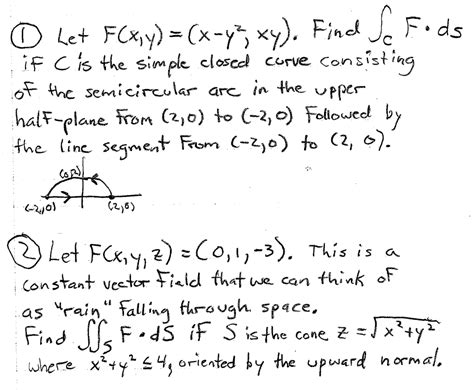 ① Let F(x,y) = (x-y², xy). Find ∫_C F·ds
if C is the simple closed curve consisting
of the semicircular arc in the upper
half-plane from (2,0) to (-2,0) followed by
the line segment from (-2,0) to (2,0).
(0,2)
(-2,0) (2,0)
② Let F(x,y,z) = (0,1,-3). This is a
constant vector field that we can think of
as "rain" falling through space.
Find ∬_S F·dS if S is the cone z = √x²+y²
where x²+y² ≤ 4, oriented by the upward normal.